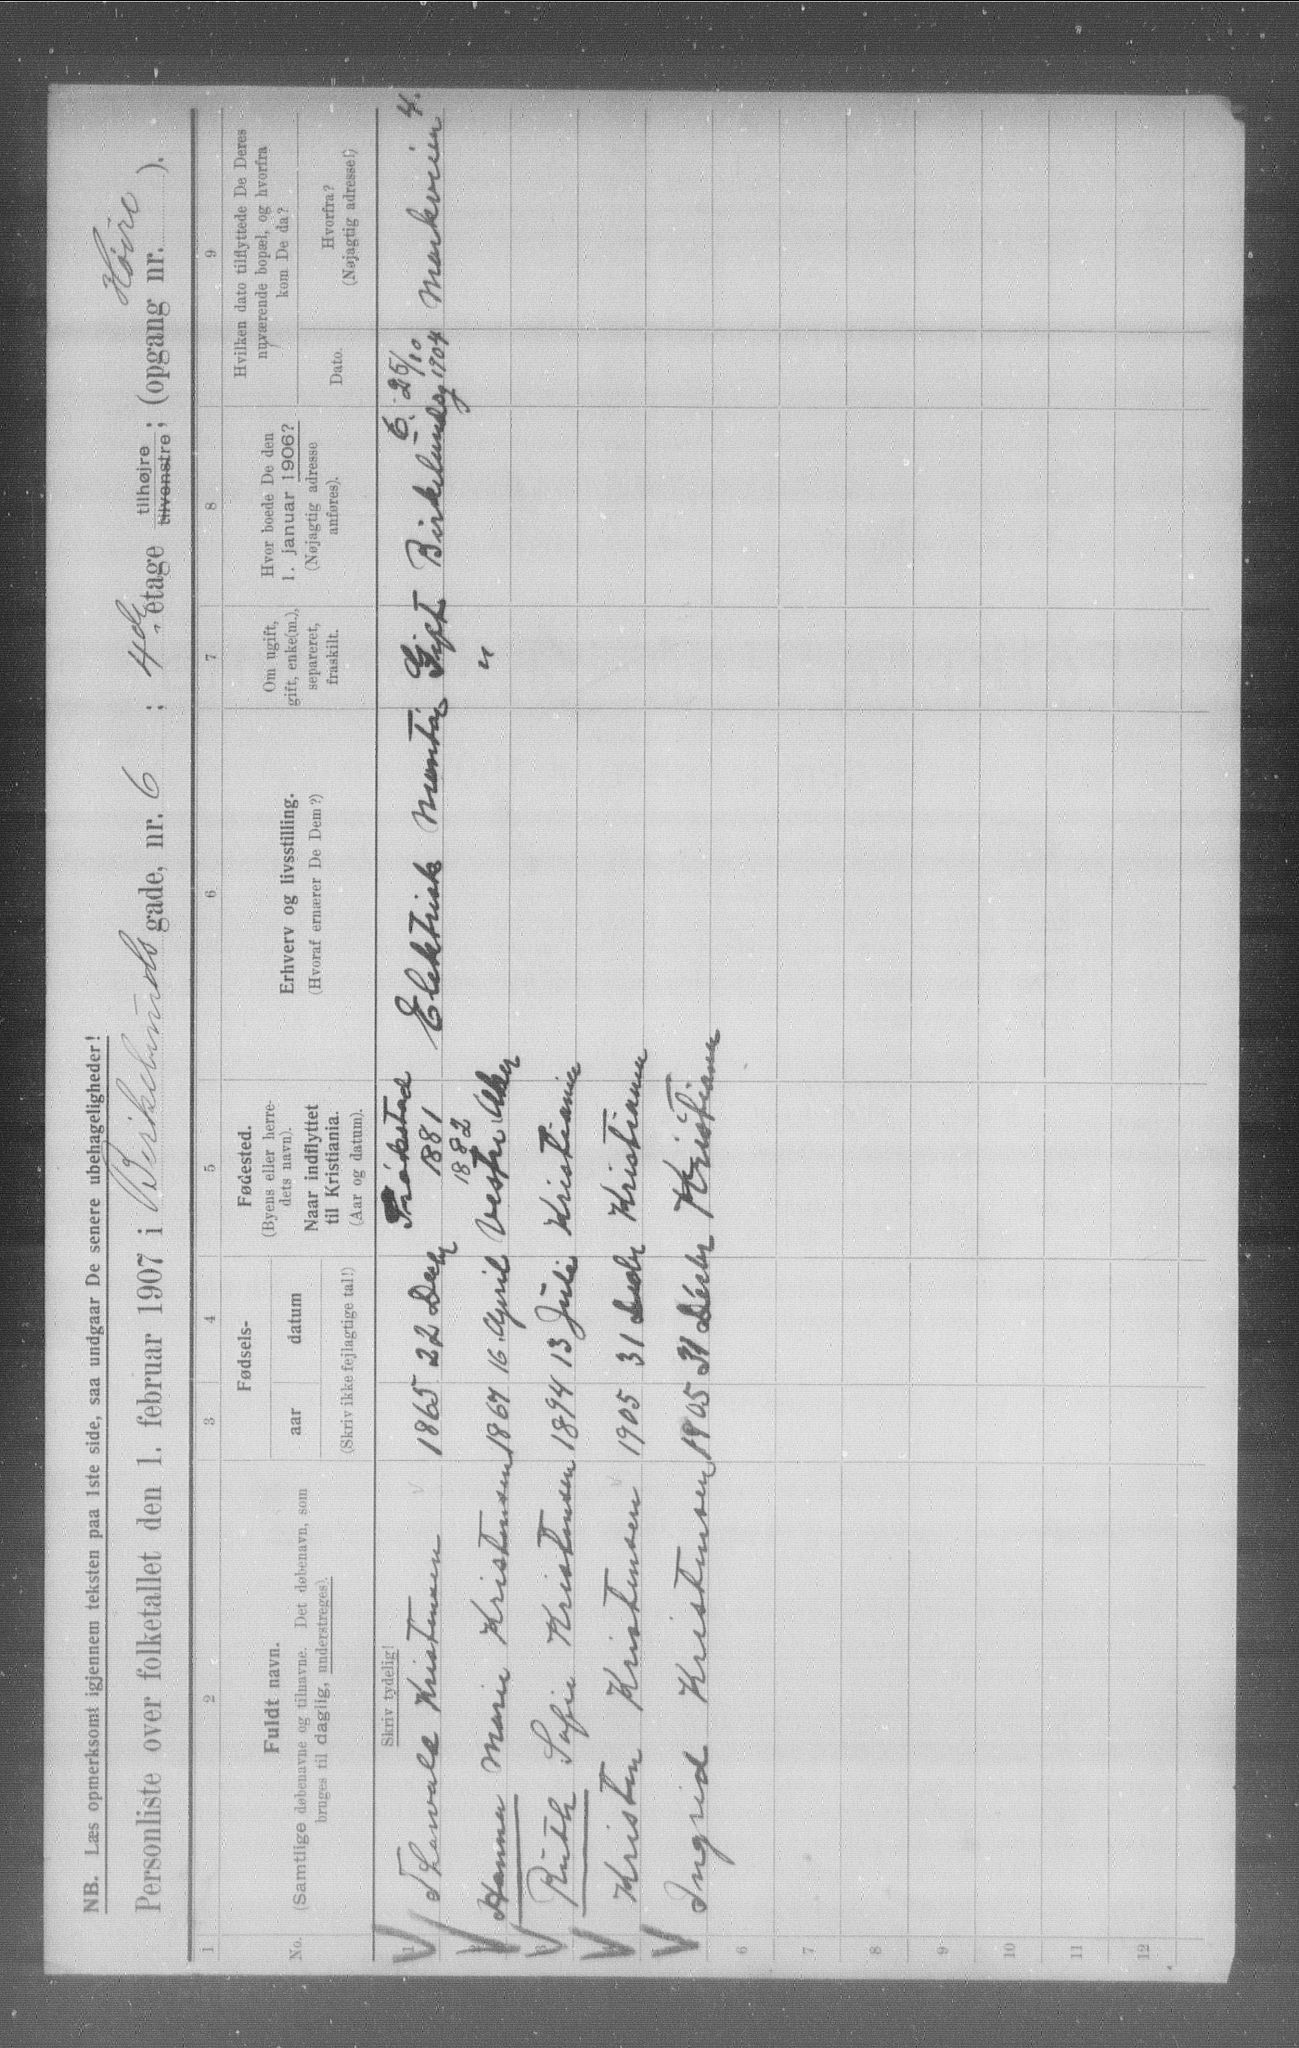 NB. Læs opmerksomt igjennem teksten paa 1ste side, saa undgaar De senere ubehageligheder!
Personliste over folketallet den 1. februar 1907 i Birkelunds gade, nr. 6 ; 4de etage tilhøjre tilvenstre; (opgang nr. Høire ).
1 2 3 4 5 6 7 8 9
No.
Fuldt navn.
(Samtlige døbenavne og tilnavne. Det døbenavn, som
bruges til daglig, understreges).
Fødsels-
aar datum
(Skriv ikke fejlagtige tal!)
Fødested.
(Byens eller herre-
dets navn).
Naar indflyttet
til Kristiania.
(Aar og datum).
Erhverv og livsstilling.
(Hvoraf ernærer De Dem?)
Om ugift,
gift, enke(m.),
separeret,
fraskilt.
Hvor boede De den
1. januar 1906?
(Nøjagtig adresse
anføres).
Hvilken dato tilflyttede De Deres
nuværende bopæl, og hvorfra
kom De da?
Dato.
Hvorfra?
(Nøjagtig adresse!)
Skriv tydelig!
1 Thorvald Kristensen 1865 22 Desbr Trøkstad 1881 Elektrisk Montør Gift Birkelundsg 6. 25/10 1904 Markveien 4.
Hanna Marie Kristensen 1867 16 April 1882 Vestre Aker "
3 Ruth Sofie Kristensen 1894 13 Juli Kristiania
Kristen Kristensen 1905 31 Desbr Kristiania
Ingrid Kristensen 1905 31 Desbr Kristiania
6
7
8
9
10
11
12